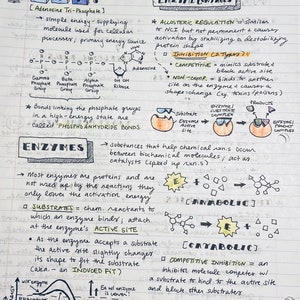 [Adenosine Tri-Phosphate]
- simple energy-supplying
molecule used for cellular
processes; primary energy source
Adenine
Gamma Beta Alpha Ribose
Phosphate Phosphate Phosphate
Group Group Group
Bonds linking the phosphate groups
in a high energy state are
called PHOSPHOANHYDRIDE BONDS.
ENZYMES
→ substances that help chemical rxns occur
between biochemical molecules, act as
catalysts (speed up rxns)
→ Most enzymes are proteins and are
not used up by the reactions they
only lower the activation energy
SUBSTRATES = chem. reactants to
which an enzyme binds; attach
at the enzyme's ACTIVE SITE
→ As the enzyme accepts a substrate
the active site slightly changes
its shape to fit the substrate
(aka - an INDUCED FIT)
ALLOSTERIC REGULATION =
to NCI but not permanent &
activation by stabilizing
protein shape
INHIBITION (2 Types)
COMPETITIVE = mimics substrate &
blocks active site
NON-COMP. = binds to another
site on the enzyme &
shape change (eg toxins/poisons)
SUBSTRATE
ENZYME
ACTIVE
SITE
ENZYME
SUBSTRATE
COMPLEX
PRODUCTS
E
[ANABOLIC]
E
[CATABOLIC]
COMPETITIVE INHIBITION = an
inhibitor molecule competes w/
a substrate to bind to the active site
and block other substrates